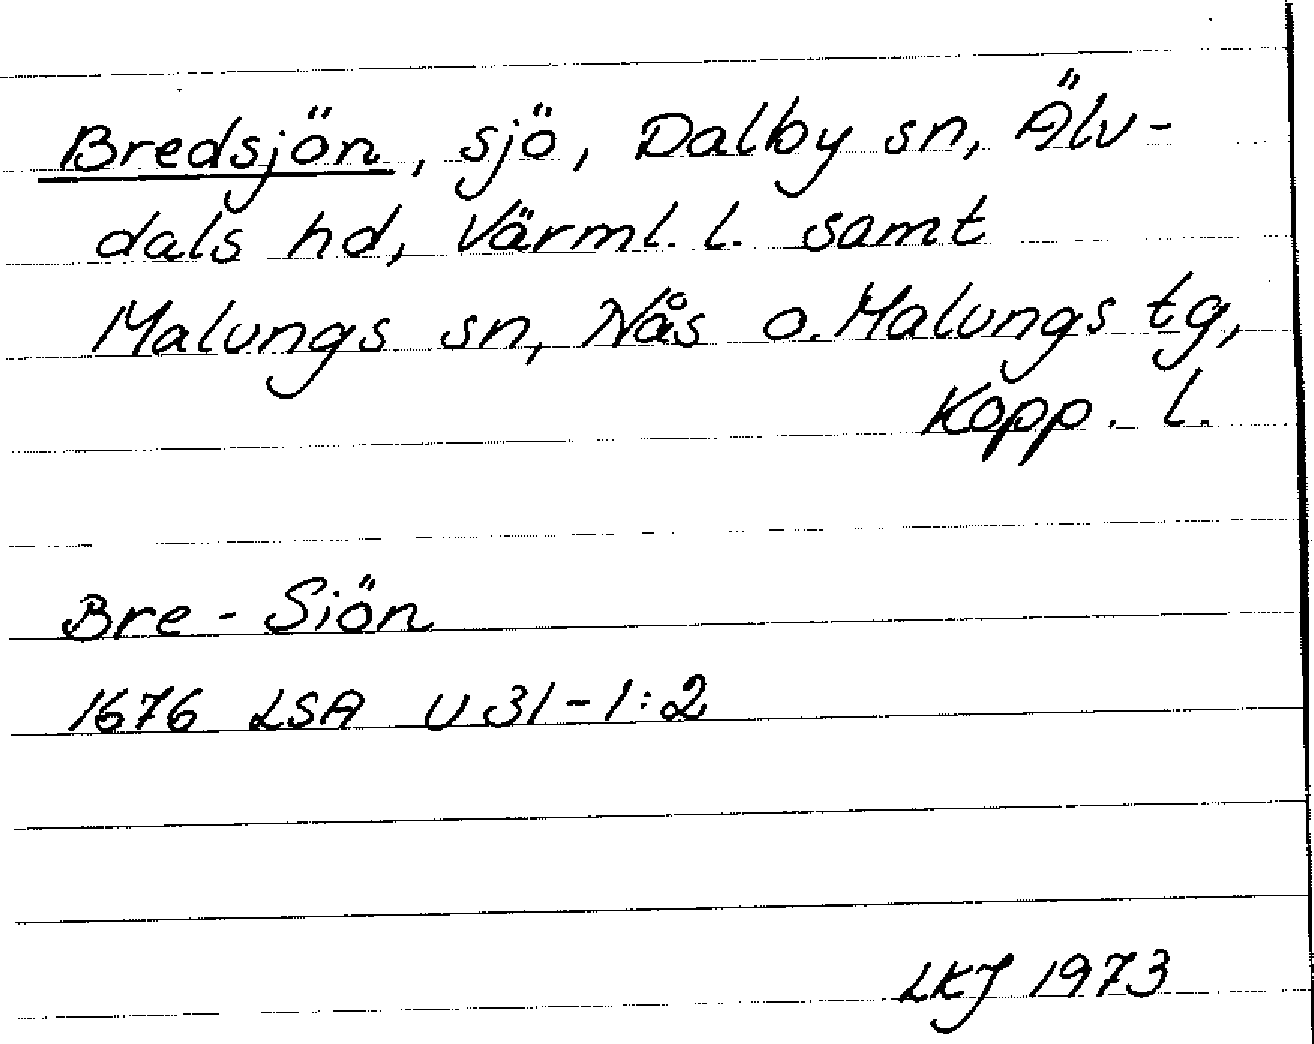 Bredsjön, sjö, Dalby sn, Älv-
dals hd, Värml. l. samt
Malungs sn, Nås o. Malungs tg,
Kopp. l.
Bre-Siön
1676 LSA U31-1:2
LKJ 1973